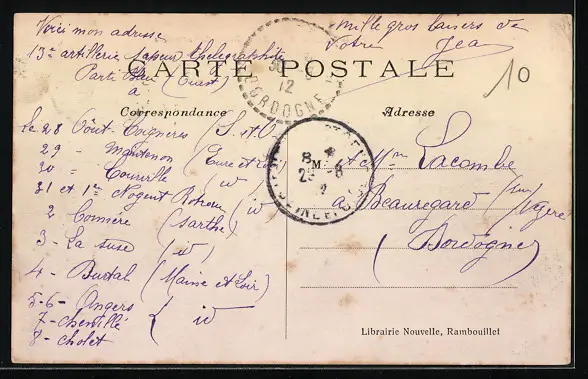 Voici mon adresse
13e artillerie sapeur thelegraphiste
Parc Bleu (Ouest)
a
mille gros baisers de
Votre
Jean
10
CARTE POSTALE
12
DORDOGNE
Correspondance
Adresse
le 28 Août Coignères (S. et O
29 - Maintenon (Eure et Loir)
30 - Courville (id)
31 et 1er Nogent Rotrou (id
2 Connéré (Sarthe)
3 - La Suse (id)
4 - Burtal (Maine et Loir)
5-6 - Angers
7 - chemillé ( id
8 - cholet
8 M
25 - 8
SEINE
Mr Lacombe
a Beauregard (sur
Vézère
(Dordogne)
Librairie Nouvelle, Rambouillet